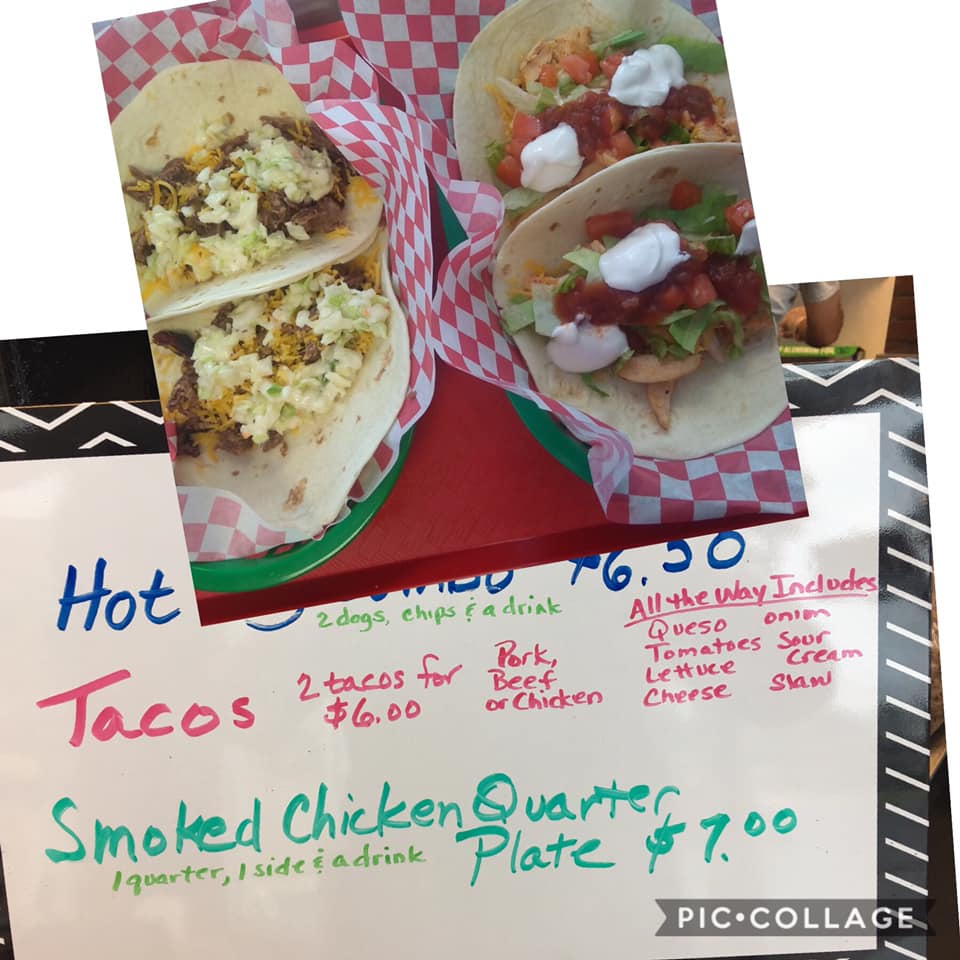 Hot Combo $6.50
2 dogs, chips & a drink
All the Way Includes
Queso onion
Tomatoes Sour Cream
Lettuce
Cheese Slaw
Tacos 2 tacos for $6.00
Pork, Beef or Chicken
Smoked Chicken Quarter Plate $7.00
1 quarter, 1 side & a drink
PIC•COLLAGE